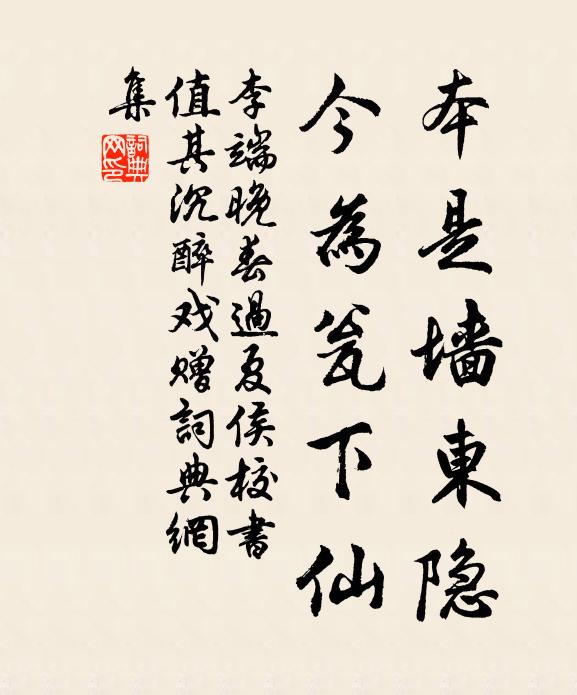 本是墙東隐
今為瓮下仙
李端晚春過夏侯校書
值其沉醉戏贈詞典網
集
詞典網印